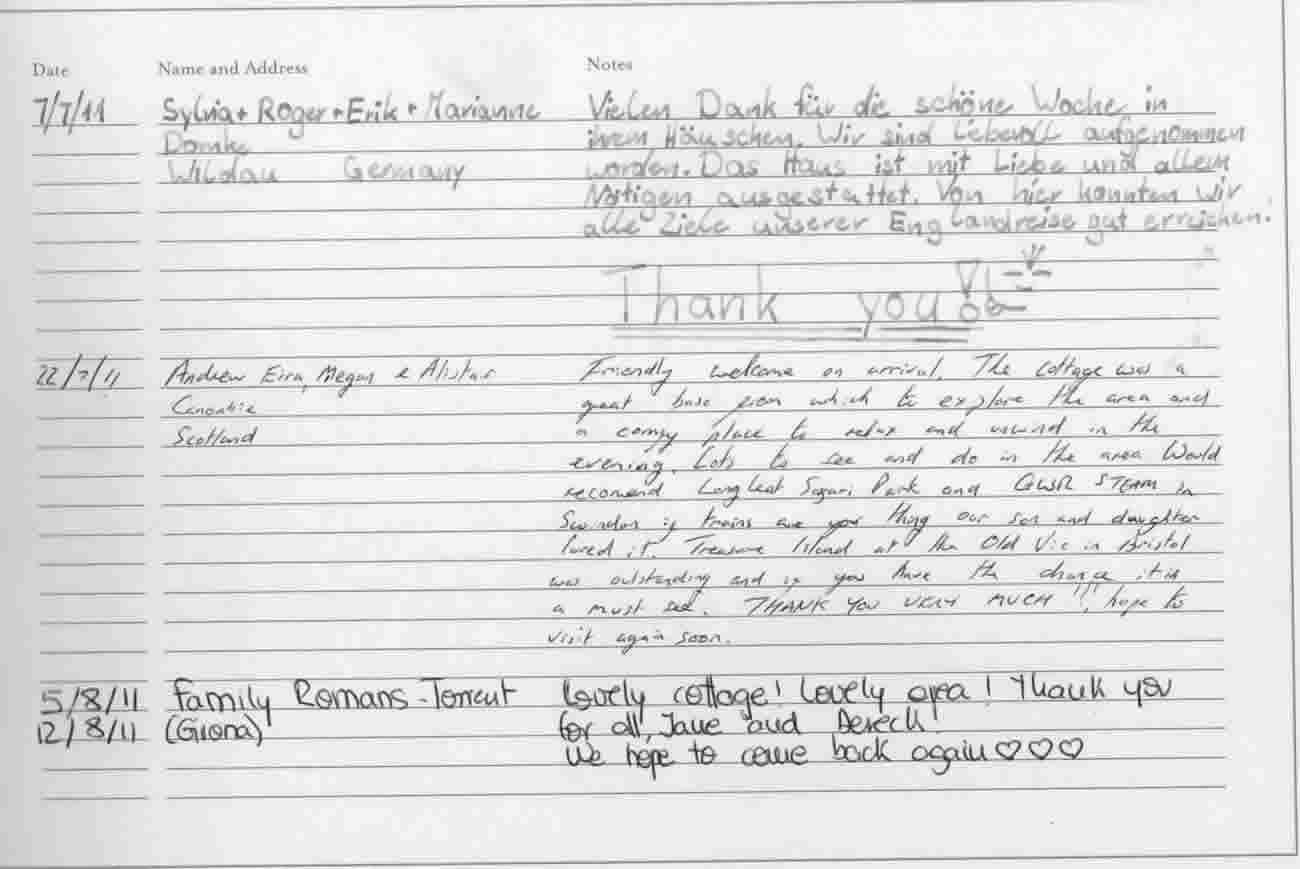 Date Name and Address Notes
7/7/11 Sylvia + Roger + Erik + Marianne Vielen Dank für die schöne Woche in
Domke ihrem Häuschen. Wir sind liebevoll aufgenommen
Wildau Germany worden. Das Haus ist mit Liebe und allem
Nötigen ausgestattet. Von hier konnten wir
alle Ziele unserer Englandreise gut erreichen.
Thank you!
22/7/11 Andrew Eira, Megan & Alistar Friendly welcome on arrival. The cottage was a
Canonbie great base from which to explore the area and
Scotland a comfy place to relax and unwind in the
evening. Lots to see and do in the area Would
recomend Longleat Safari Park and GWR STEAM in
Swindon if trains are your thing our son and daughter
loved it. Treasure Island at the Old Vic in Bristol
was outstanding and if you have the chance it is
a must see. THANK YOU VERY MUCH!!! hope to
visit again soon.
5/8/11 Family Romans-Torrent Lovely cottage! Lovely area! Thank you
12/8/11 (Girona) for all, Jane and Dereck!
We hope to come back again ♡♡♡